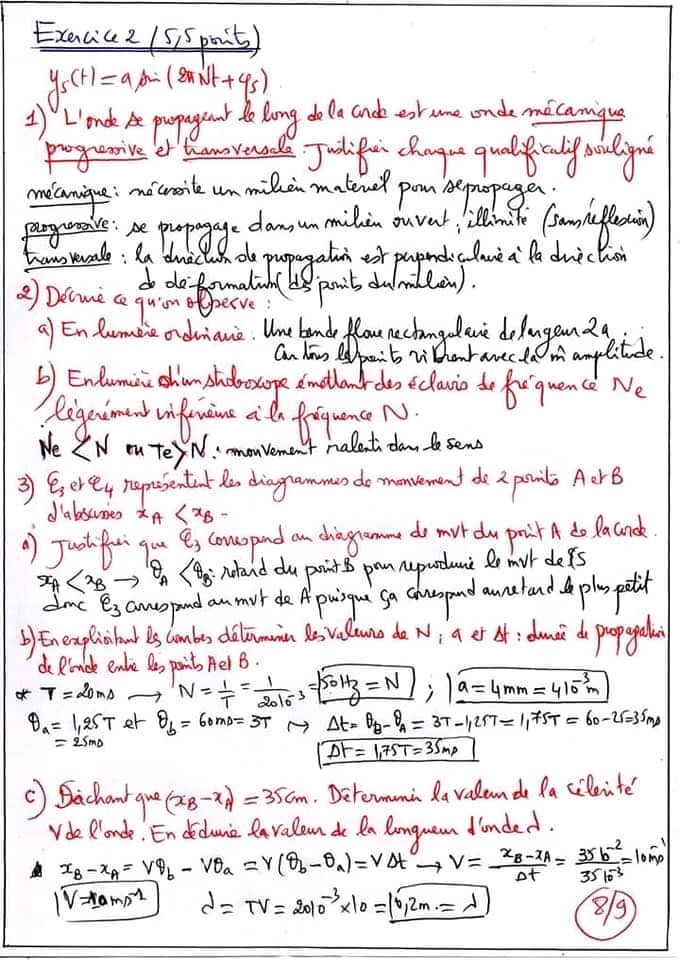 Exercice 2 (5,5 points)
ys(t) = a sin(2πNt + φs)
1) L'onde se propageant le long de la corde est une onde mécanique
progressive et transversale. Justifier chaque qualificatif souligné
mécanique : nécessite un milieu materiel pour se propager.
progressive : se propage dans un milieu ouvert, illimité (sans réflexion)
transversale : la direction de propagation est perpendiculaire à la direction
de déformation (des points du milieu).
2) Décrire ce qu'on observe :
a) En lumière ordinaire. Une bande floue rectangulaire de largeur 2a.
Car tous les points vibrent avec la m̂ amplitude.
b) En lumière d'un stroboscope émettant des éclairs de fréquence Ne
légèrement inférieure à la fréquence N.
Ne < N ou Te > N : mouvement ralenti dans le sens
3) ℰ3 et ℰ4 représentent les diagrammes de mouvement de 2 points A et B
d'abscisses xA < xB -
a) Justifier que ℰ3 correspond au diagramme de mvt du point A de la corde.
xA < xB → θA < θB : retard du point B pour reproduire le mvt de S
donc ℰ3 correspond au mvt de A puisque ça correspond au retard le plus petit
b) En exploitant les courbes déterminer les valeurs de N ; a et Δt : durée de propagation
de l'onde entre les points A et B.
* T = 20ms → N = 1/T = 1/20 10⁻³ = 50Hz = N ; a = 4mm = 4 10⁻³m
θa = 1,25T et θb = 60ms = 3T ⇝ Δt = θB - θA = 3T - 1,25T = 1,75T = 60 - 25 = 35ms
= 25ms
Δt = 1,75T = 35ms
c) Sachant que (xB - xA) = 35cm. Déterminer la valeur de la célérité
V de l'onde. En déduire la valeur de la longueur d'onde λ.
xB - xA = Vθb - Vθa = V(θb - θa) = VΔt → V = xB - xA/Δt = 35 10⁻²/35 10⁻³ = 10ms⁻¹
V = 10ms⁻¹
λ = TV = 20 10⁻³ × 10 = 0,2m. = λ
8/9